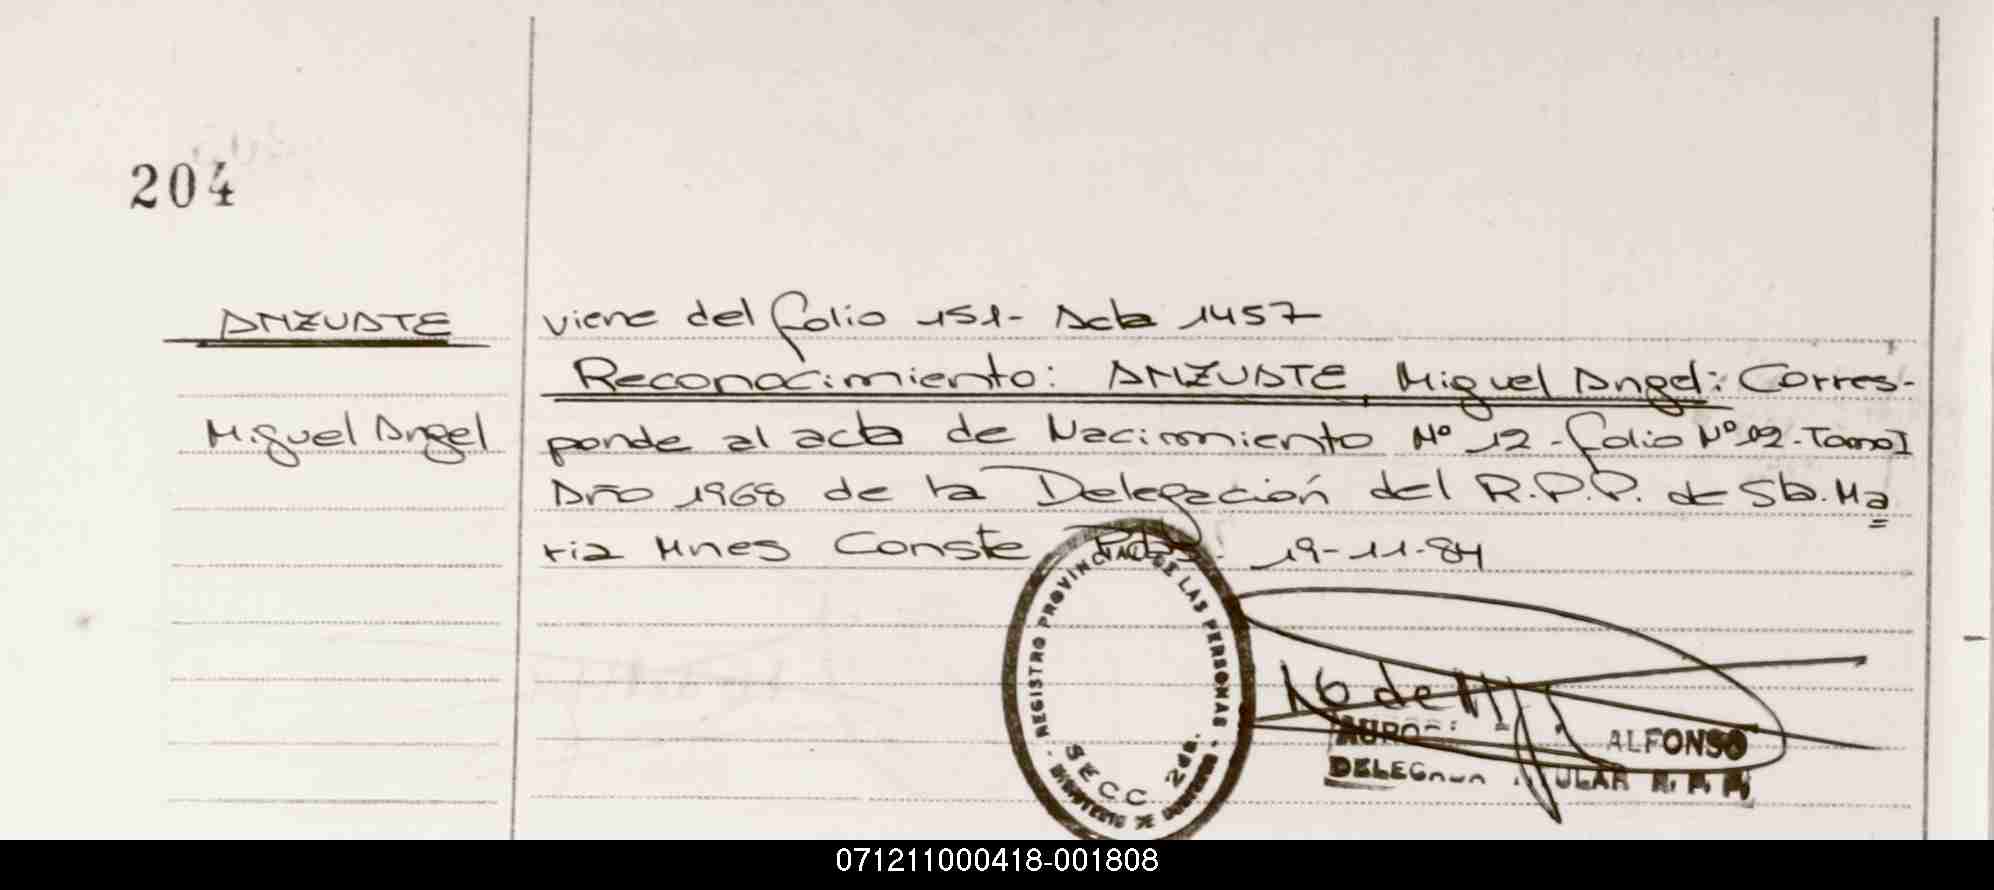 204
ANZUATE
Miguel Angel
viene del folio 151- Acta 1457
Reconocimiento: ANZUATE Miguel Angel: Corres-
ponde al acta de Nacimiento Nº 12 - folio Nº 02 - Tomo I
Año 1968 de la Delegación del R.P.P. de Sta. Ma
ria Conste 19-11-84
REGISTRO PROVINCIAL DE LAS PERSONAS
SECC 2da.
ALFONSO
071211000418-001808